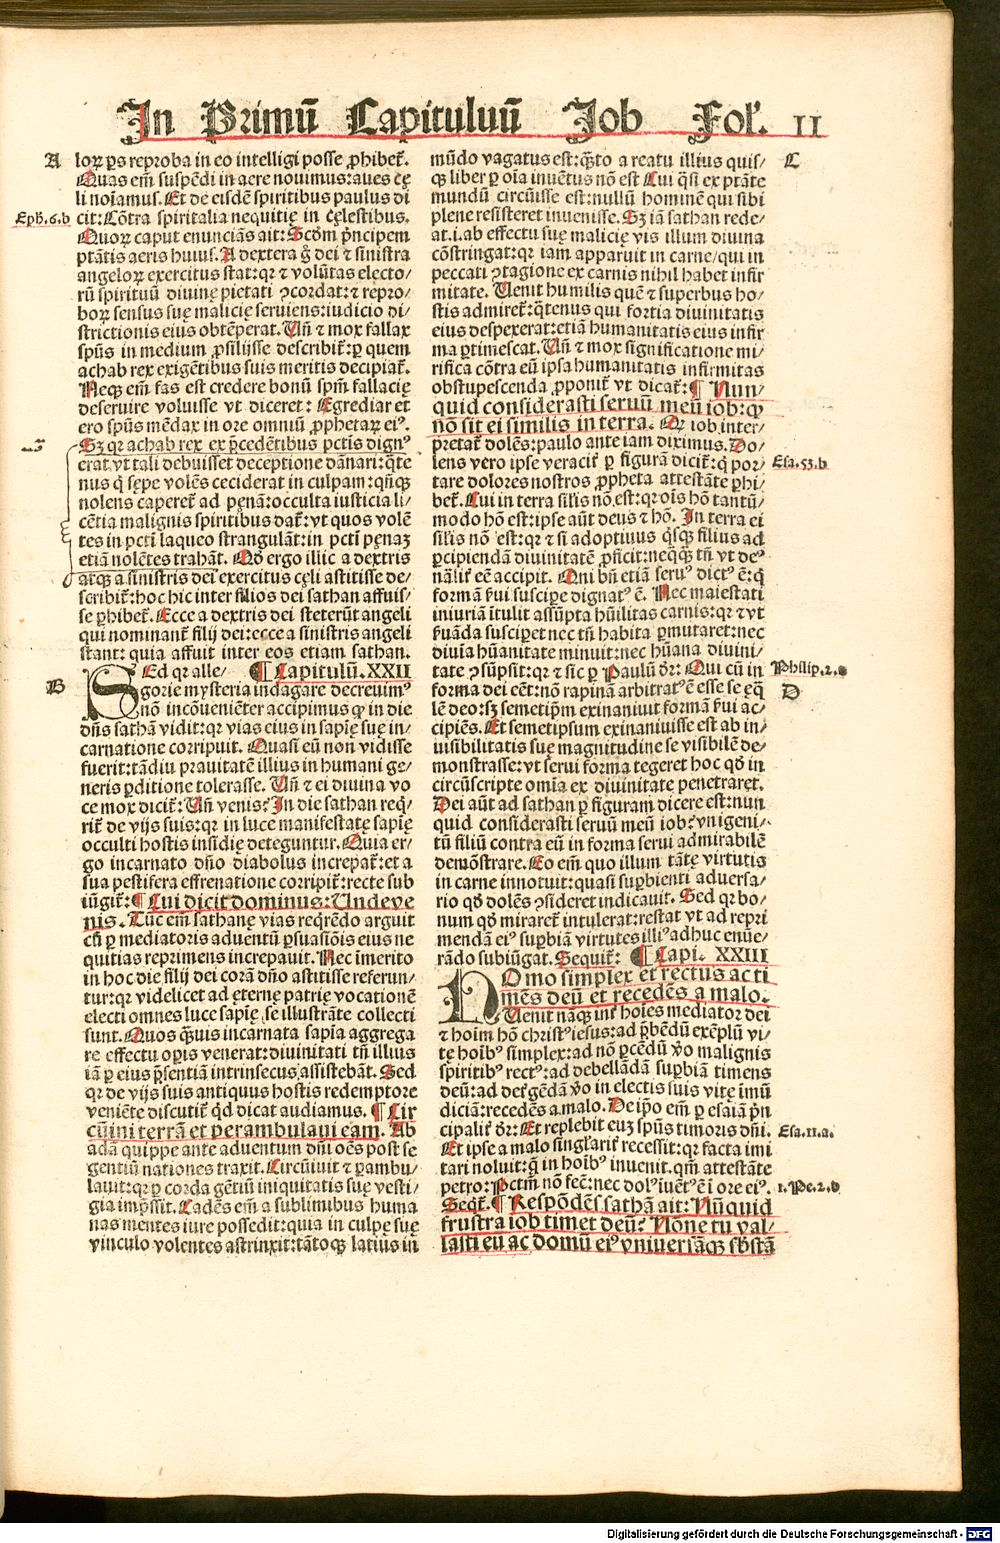 In Primū Capituluū Job Fol'. II
A
loꝝ ꝑs reproba in eo intelligi posse ꝓhibet̃.
Quas em̃ suspẽdi in aere nouimus: aues cę
li noĩamus. Et de eisdẽ spiritibus paulus di
Eph̃. 6. b
cit: Cõtra spiritalia nequitię in cęlestibus.
Quoꝝ caput enunciãs ait: Scd̃m p̃ncipem
ptãtis aeris huius. A dextera g̊ dei ⁊ sinistra
angeloꝝ exercitus stat: qꝛ ⁊ volũtas electo/
rũ spirituũ diuinę pietati ꝯcordat: ⁊ repro/
boꝝ sensus suę malicię seruiens: iudicio di/
strictionis eius obtẽperat. Vñ ⁊ mox fallax
spũs in medium ꝓsilijsse describit̃: ꝑ quem
achab rex exigẽtibus suis meritis decipiat̃.
Neqꝫ em̃ fas est credere bonũ spm̃ fallacię
deseruire voluisse vt diceret: Egrediar et
ero spũs mẽdax in ore omniũ ꝓphetaꝝ eiꝰ.
Sꝫ qꝛ achab rex ex p̃cedẽtibus pctis dignꝰ
erat vt tali debuisset deceptione dãnari: q̃te
nus q̇ sępe volẽs ceciderat in culpam: qñqꝫ
nolens caperet̃ ad pęnã: occulta iusticia li/
cẽtia malignis spiritibus dat̃: vt quos volẽ
tes in pctĩ laqueo strangulãt: in pctĩ pęnaꝫ
etiã nolẽtes trahãt. Qđ ergo illic a dextris
atqꝫ a sinistris dei exercitus cęli astitisse de/
scribit̃: hoc hic inter filios dei sathan affuis/
se ꝑhibet̃. Ecce a dextris dei steterũt angeli
qui nominant̃ filij dei: ecce a sinistris angeli
stant: quia affuit inter eos etiam sathan.
B
SEd qꝛ alle/ ¶ Capitulũ. XXII
gorie mysteria indagare decreuimꝰ
nõ incõueniẽter accipimus ꝙ in die
dñs sathã vidit: qꝛ vias eius in sapię suę in/
carnatione corripuit. Quasi eũ non vidisse
fuerit: tãdiu prauitatẽ illius in humani ge/
neris ꝑditione tolerasse. Vñ ⁊ ei diuina vo
ce mox dicit̃: Vñ venis? In die sathan req̇/
rit̃ de vijs suis: qꝛ in luce manifestatę sapię
occulti hostis insidię deteguntur. Quia er/
go incarnato dño diabolus increpat̃: et a
sua pestifera effrenatione corripit̃: recte sub
iũgit̃: ¶ Cui dicit dominus: Vnde ve
nis. Tũc em̃ sathanę vias reqrẽdo arguit
cũ ꝑ mediatoris aduentũ ꝑsuasiõis eius ne
quitias reprimens increpauit. Nec ĩmerito
in hoc die filij dei corã dño astitisse referun/
tur: qꝛ videlicet ad ęternę patrię vocationẽ
electi omnes luce sapię se illustrãte collecti
sunt. Quos q̃uis incarnata sapia aggrega
re effectu oꝑis venerat: diuinitati tñ illius
iã ꝑ eius p̃sentiã intrinsecus assistebãt. Sed
qꝛ de vijs suis antiquus hostis redemptore
veniẽte discutit̃ q̇d dicat audiamus. ¶ Cir
cũini terrã et perambulaui eam. Ab
adã quippe ante aduentum dñi oẽs post se
gentiũ nationes traxit. Circũiuit ⁊ ꝑambu/
lauit: qꝛ ꝑ corda gẽtiũ iniquitatis suę vesti/
gia imp̃ssit. Cadẽs em̃ a sublimibus huma
nas mentes iure possedit: quia in culpę suę
vinculo volentes astrinxit: tãtoqꝫ latius in
C
mũdo vagatus est: q̃to a reatu illius quis/
qꝫ liber ꝑ oĩa inuẽtus nõ est Cui q̃si ex ptãte
mundũ circũisse est: nullũ hominẽ qui sibi
plene resisteret inuenisse. Sꝫ iã sathan rede/
at. i. ab effectu suę malicię vis illum diuina
cõstringat: qꝛ iam apparuit in carne/ qui in
peccati ꝯtagione ex carnis nihil habet infir
mitate. Venit humilis quẽ ⁊ superbus ho/
stis admiret̃: q̃tenus qui fortia diuinitatis
eius despexerat: etiã humanitatis eius infir
ma ꝑtimescat. Vñ ⁊ mox significatione mi/
rifica cõtra eũ ipsa humanitatis infirmitas
obstupescenda ꝓponit̃ vt dicat̃: ¶ Nun/
quid considerasti seruũ meũ iob: ꝙ
nõ sit ei similis in terra. Qꝛ iob inter/
pretat̃ dolẽs: paulo ante iam diximus. Do/
Esa. 53. b
lens vero ipse veracit̃ ꝑ figurã dicit̃: q̇ por/
tare dolores nostros ꝓpheta attestãte ꝑhi/
bet̃. Cui in terra silis nõ est: qꝛ oĩs hõ tantũ/
modo hõ est: ipse aũt deus ⁊ hõ. In terra ei
silis nõ est: qꝛ ⁊ si adoptiuus q̇sqꝫ filius ad
ꝑcipiendã diuinitatẽ ꝓficit: neq̃qꝫ tñ vt deꝰ
nãlit̃ eẽ accipit. Qni bñ etiã seruꝰ dictꝰ ẽ: q̇
formã ẽui suscipe dignatꝰ ẽ. Nec maiestati
iniuriã ĩtulit assũpta hũilitas carnis: qꝛ ⁊ vt
ẽuãda susciperet nec tñ habita ꝑmutaret: nec
diuia hũanitate minuit: nec hũana diuini/
Philip. 2. a
tate ꝯsũpsit: qꝛ ⁊ sic ꝑ Paulũ dr̃: Qui cũ in
D
forma dei eẽt: nõ rapinã arbitratꝰ ẽ esse se ęq̃
lẽ deo: sꝫ semetipm̃ exinaniuit formã ẽui ac/
cipiẽs. Et semetipsum exinaniuisse est ab in/
uisibilitatis suę magnitudine se visibilẽ de/
monstrasse: vt serui forma tegeret hoc qđ in
circũscripte omĩa ex diuinitate penetraret.
Dei aũt ad sathan ꝑ figuram dicere est: nun
quid considerasti seruũ meũ iob: vnigeni/
tũ filiũ contra eũ in forma serui admirabilẽ
demõstrare. Eo em̃ quo illum tãtę virtutis
in carne innotuit: quasi suꝑbienti aduersa/
rio qđ dolẽs ꝯsideret indicauit. Sed qꝛ bo/
num qđ miraret̃ intulerat: restat vt ad repri
mendã eiꝰ suꝑbiã virtutes illiꝰ adhuc enũe/
rãdo subiũgat. Sequit̃: ¶ Capi. XXIII
HOmo simplex et rectus ac ti
mẽs deũ et recedẽs a malo.
Uenit nãqꝫ int̃ hoĩes mediator dei
⁊ hoĩm hõ christꝰ iesus: ad p̃bẽdũ exẽplũ vi/
tę hoĩbꝰ simplex: ad nõ ꝑcẽdũ ṽo malignis
spiritibꝰ rectꝰ: ad debellãdã suꝑbiã timens
deũ: ad det̃gẽdã ṽo in electis suis vitę ĩmũ
diciã: recedẽs a malo. De ip̃o em̃ ꝑ esaiã p̃n
Esa. 11. a.
cipalit̃ dr̃: Et replebit euꝫ spũs timoris dñi.
Et ipse a malo singl'arit̃ recessit: qꝛ facta imi
tari noluit: q̃ in hoĩbꝰ inuenit. qm̃ attestãte
1. Pe. 2. d
petro: Pctm̃ nõ fec̃: nec dolꝰ iuẽtꝰ ẽ i ore eiꝰ.
Seqt̃. ¶ Respõdẽs sathã ait: Nũquid
frustra iob timet deũ? Nõne tu val/
lasti eũ ac domũ eiꝰ vniuersãqꝫ sb̃stã
Digitalisierung gefördert durch die Deutsche Forschungsgemeinschaft - DFG